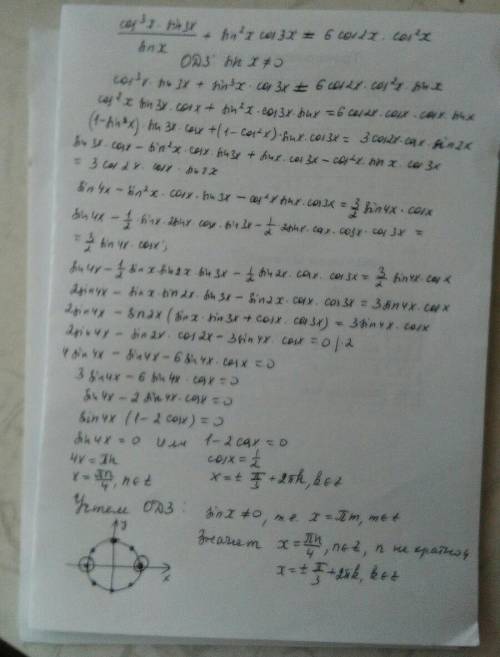 cos³x · sin3x / sinx + sin²x cos3x = 6 cos2x · cos²x
ОДЗ: sin x ≠ 0
cos³x · sin3x + sin³x · cos3x = 6 cos2x · cos²x · sinx
cos²x sin3x · cosx + sin²x · cos3x · sinx = 6 cos2x · cosx · cosx · sinx
(1-sin²x) · sin3x · cosx + (1-cos²x) · sinx · cos3x = 3cos2x · cosx · sin2x
sin3x · cosx - sin²x · cosx · sin3x + sinx · cos3x - cos²x · sinx · cos3x
= 3 cos2x · cosx · sin2x
sin4x - sin²x · cosx · sin3x - cos²x sinx · cos3x = 3/2 sin4x · cosx
sin4x - 1/2 · sinx · 2sinx · cosx · sin3x - 1/2 2sinx · cosx · cosx · cos3x =
= 3/2 sin4x · cosx;
sin4x - 1/2 sinx sin2x sin3x - 1/2 sin2x · cosx · cos3x = 3/2 sin4x · cosx
2sin4x - sinx · sin2x · sin3x - sin2x · cosx · cos3x = 3sin4x · cosx
2sin4x - sin2x (sinx · sin3x + cosx · cos3x) = 3sin4x · cosx
2sin4x - sin2x · cos2x - 3sin4x · cosx = 0 | · 2
4 sin4x - sin4x - 6 sin4x · cosx = 0
3 sin4x - 6 sin4x · cosx = 0
sin4x - 2 sin4x · cosx = 0
sin4x (1 - 2 cosx) = 0
sin4x = 0 или 1 - 2 cosx = 0
4x = πn cosx = 1/2
x = πn/4, n∈z x = ± π/3 + 2πk, k∈z
Учтем ОДЗ: sinx ≠ 0, т.е. x = πm, m∈z
y
x
Значит x = πn/4, n∈z, n не кратно 4
x = ± π/3 + 2πk, k∈z